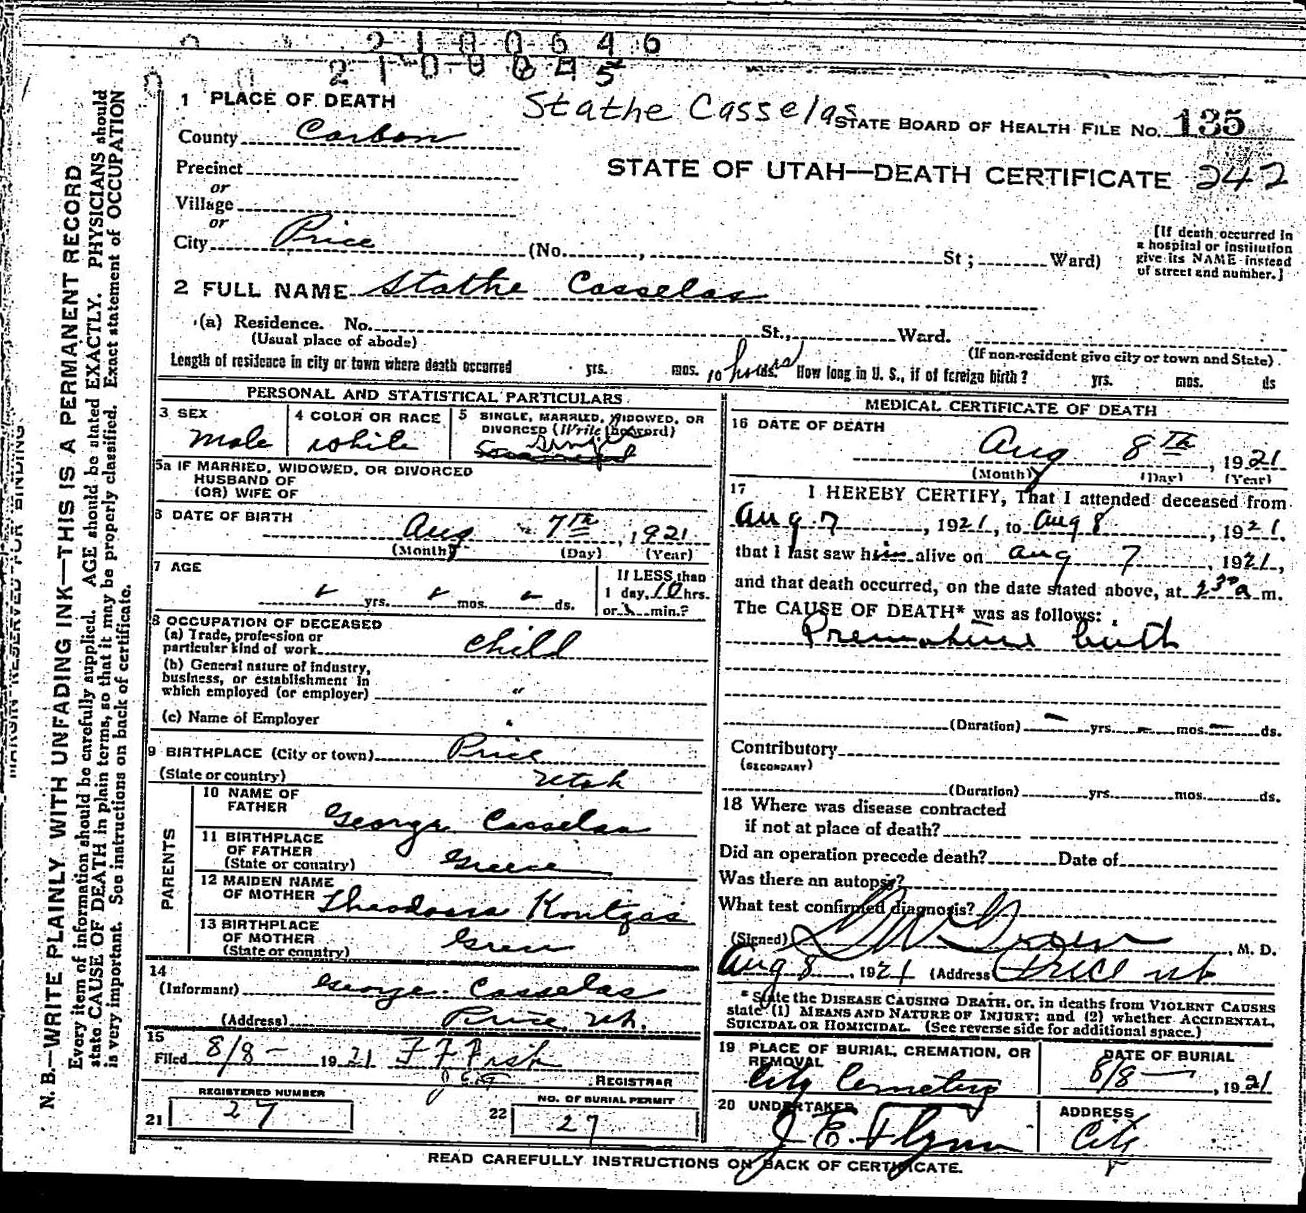 2 1 0 0 6 4 6
2 1 0 0 6 4 5
1 PLACE OF DEATH
Stathe Casselas
STATE BOARD OF HEALTH FILE NO. 135
County Carbon
STATE OF UTAH—DEATH CERTIFICATE 242
Precinct
or
Village
or
City Price (No. , St ; Ward)
[If death occurred in a hospital or institution give its NAME instead of street and number.]
2 FULL NAME Stathe Casselas
(a) Residence. No. St., Ward.
(Usual place of abode) (If non-resident give city or town and State)
Length of residence in city or town where death occurred yrs. mos. 10 hours ds. How long in U. S., if of foreign birth? yrs. mos. ds
PERSONAL AND STATISTICAL PARTICULARS
3 SEX Male
4 COLOR OR RACE White
5 SINGLE, MARRIED, WIDOWED, OR DIVORCED (Write the word) Single
5a IF MARRIED, WIDOWED, OR DIVORCED
HUSBAND OF
(OR) WIFE OF
6 DATE OF BIRTH Aug 7th, 1921
(Month) (Day) (Year)
7 AGE
yrs. mos. ds.
If LESS than
1 day, 10 hrs.
or min.?
8 OCCUPATION OF DECEASED
(a) Trade, profession or
particular kind of work child
(b) General nature of industry,
business, or establishment in
which employed (or employer) "
(c) Name of Employer "
9 BIRTHPLACE (City or town) Price
(State or country) Utah
PARENTS
10 NAME OF
FATHER George Casselas
11 BIRTHPLACE
OF FATHER
(State or country) Greece
12 MAIDEN NAME
OF MOTHER Theodora Kontzas
13 BIRTHPLACE
OF MOTHER
(State or country)
14
(Informant) George Casselas
(Address) Price, Ut.
15
Filed 8/8 – 1921 F F Fisk
REGISTRAR
REGISTERED NUMBER
21 27
NO. OF BURIAL PERMIT
22 27
MEDICAL CERTIFICATE OF DEATH
16 DATE OF DEATH
Aug 8th, 1921
(Month) (Day) (Year)
17 I HEREBY CERTIFY, That I attended deceased from
Aug 7, 1921, to Aug 8, 1921,
that I last saw him alive on Aug 7, 1921,
and that death occurred, on the date stated above, at 2 30 a m.
The CAUSE OF DEATH* was as follows:
Premature birth
(Duration) – yrs. – mos – ds.
Contributory
(SECONDARY)
(Duration) yrs. mos. ds.
18 Where was disease contracted
if not at place of death?
Did an operation precede death? Date of
Was there an autopsy?
What test confirmed diagnosis?
(Signed) M. D.
Aug 8, 1921 (Address Price Ut
* State the DISEASE CAUSING DEATH, or, in deaths from VIOLENT CAUSES
state (1) MEANS AND NATURE OF INJURY; and (2) whether ACCIDENTAL,
SUICIDAL OR HOMICIDAL. (See reverse side for additional space.)
19 PLACE OF BURIAL, CREMATION, OR
REMOVAL
City Cemetery
DATE OF BURIAL
8/8 — , 1921
20 UNDERTAKER
J. E. Flynn
ADDRESS
City
READ CAREFULLY INSTRUCTIONS ON BACK OF CERTIFICATE.
MARGIN RESERVED FOR BINDING
N. B.—WRITE PLAINLY WITH UNFADING INK—THIS IS A PERMANENT RECORD
Every item of information should be carefully supplied. AGE should be stated EXACTLY. PHYSICIANS should
state CAUSE OF DEATH in plain terms, so that it may be properly classified. Exact statement of OCCUPATION
is very important. See instructions on back of certificate.